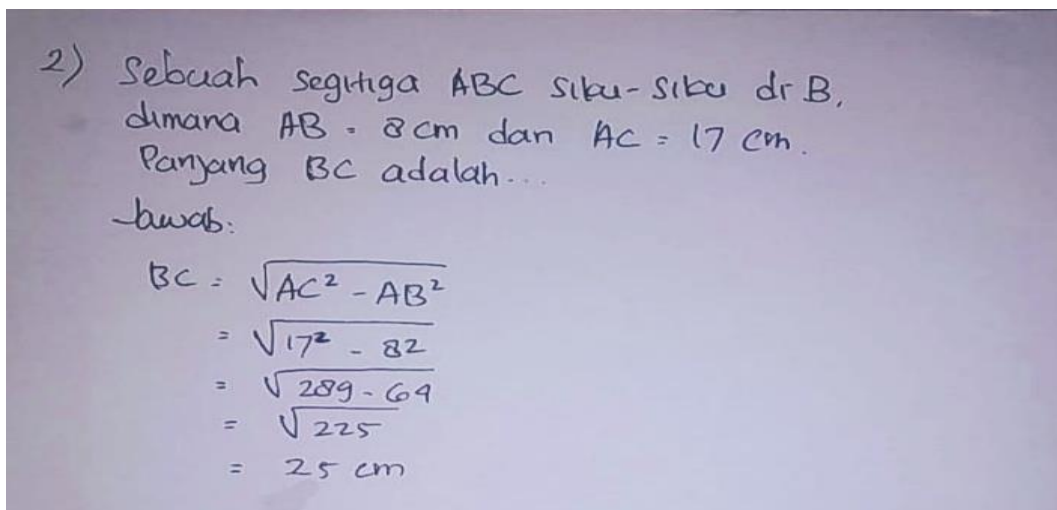 2) Sebuah segitiga ABC siku-siku di B,
dimana AB = 8 cm dan AC = 17 cm.
Panjang BC adalah...
Jawab:
BC = √AC² - AB²
= √17² - 82
= √289 - 64
= √225
= 25 cm